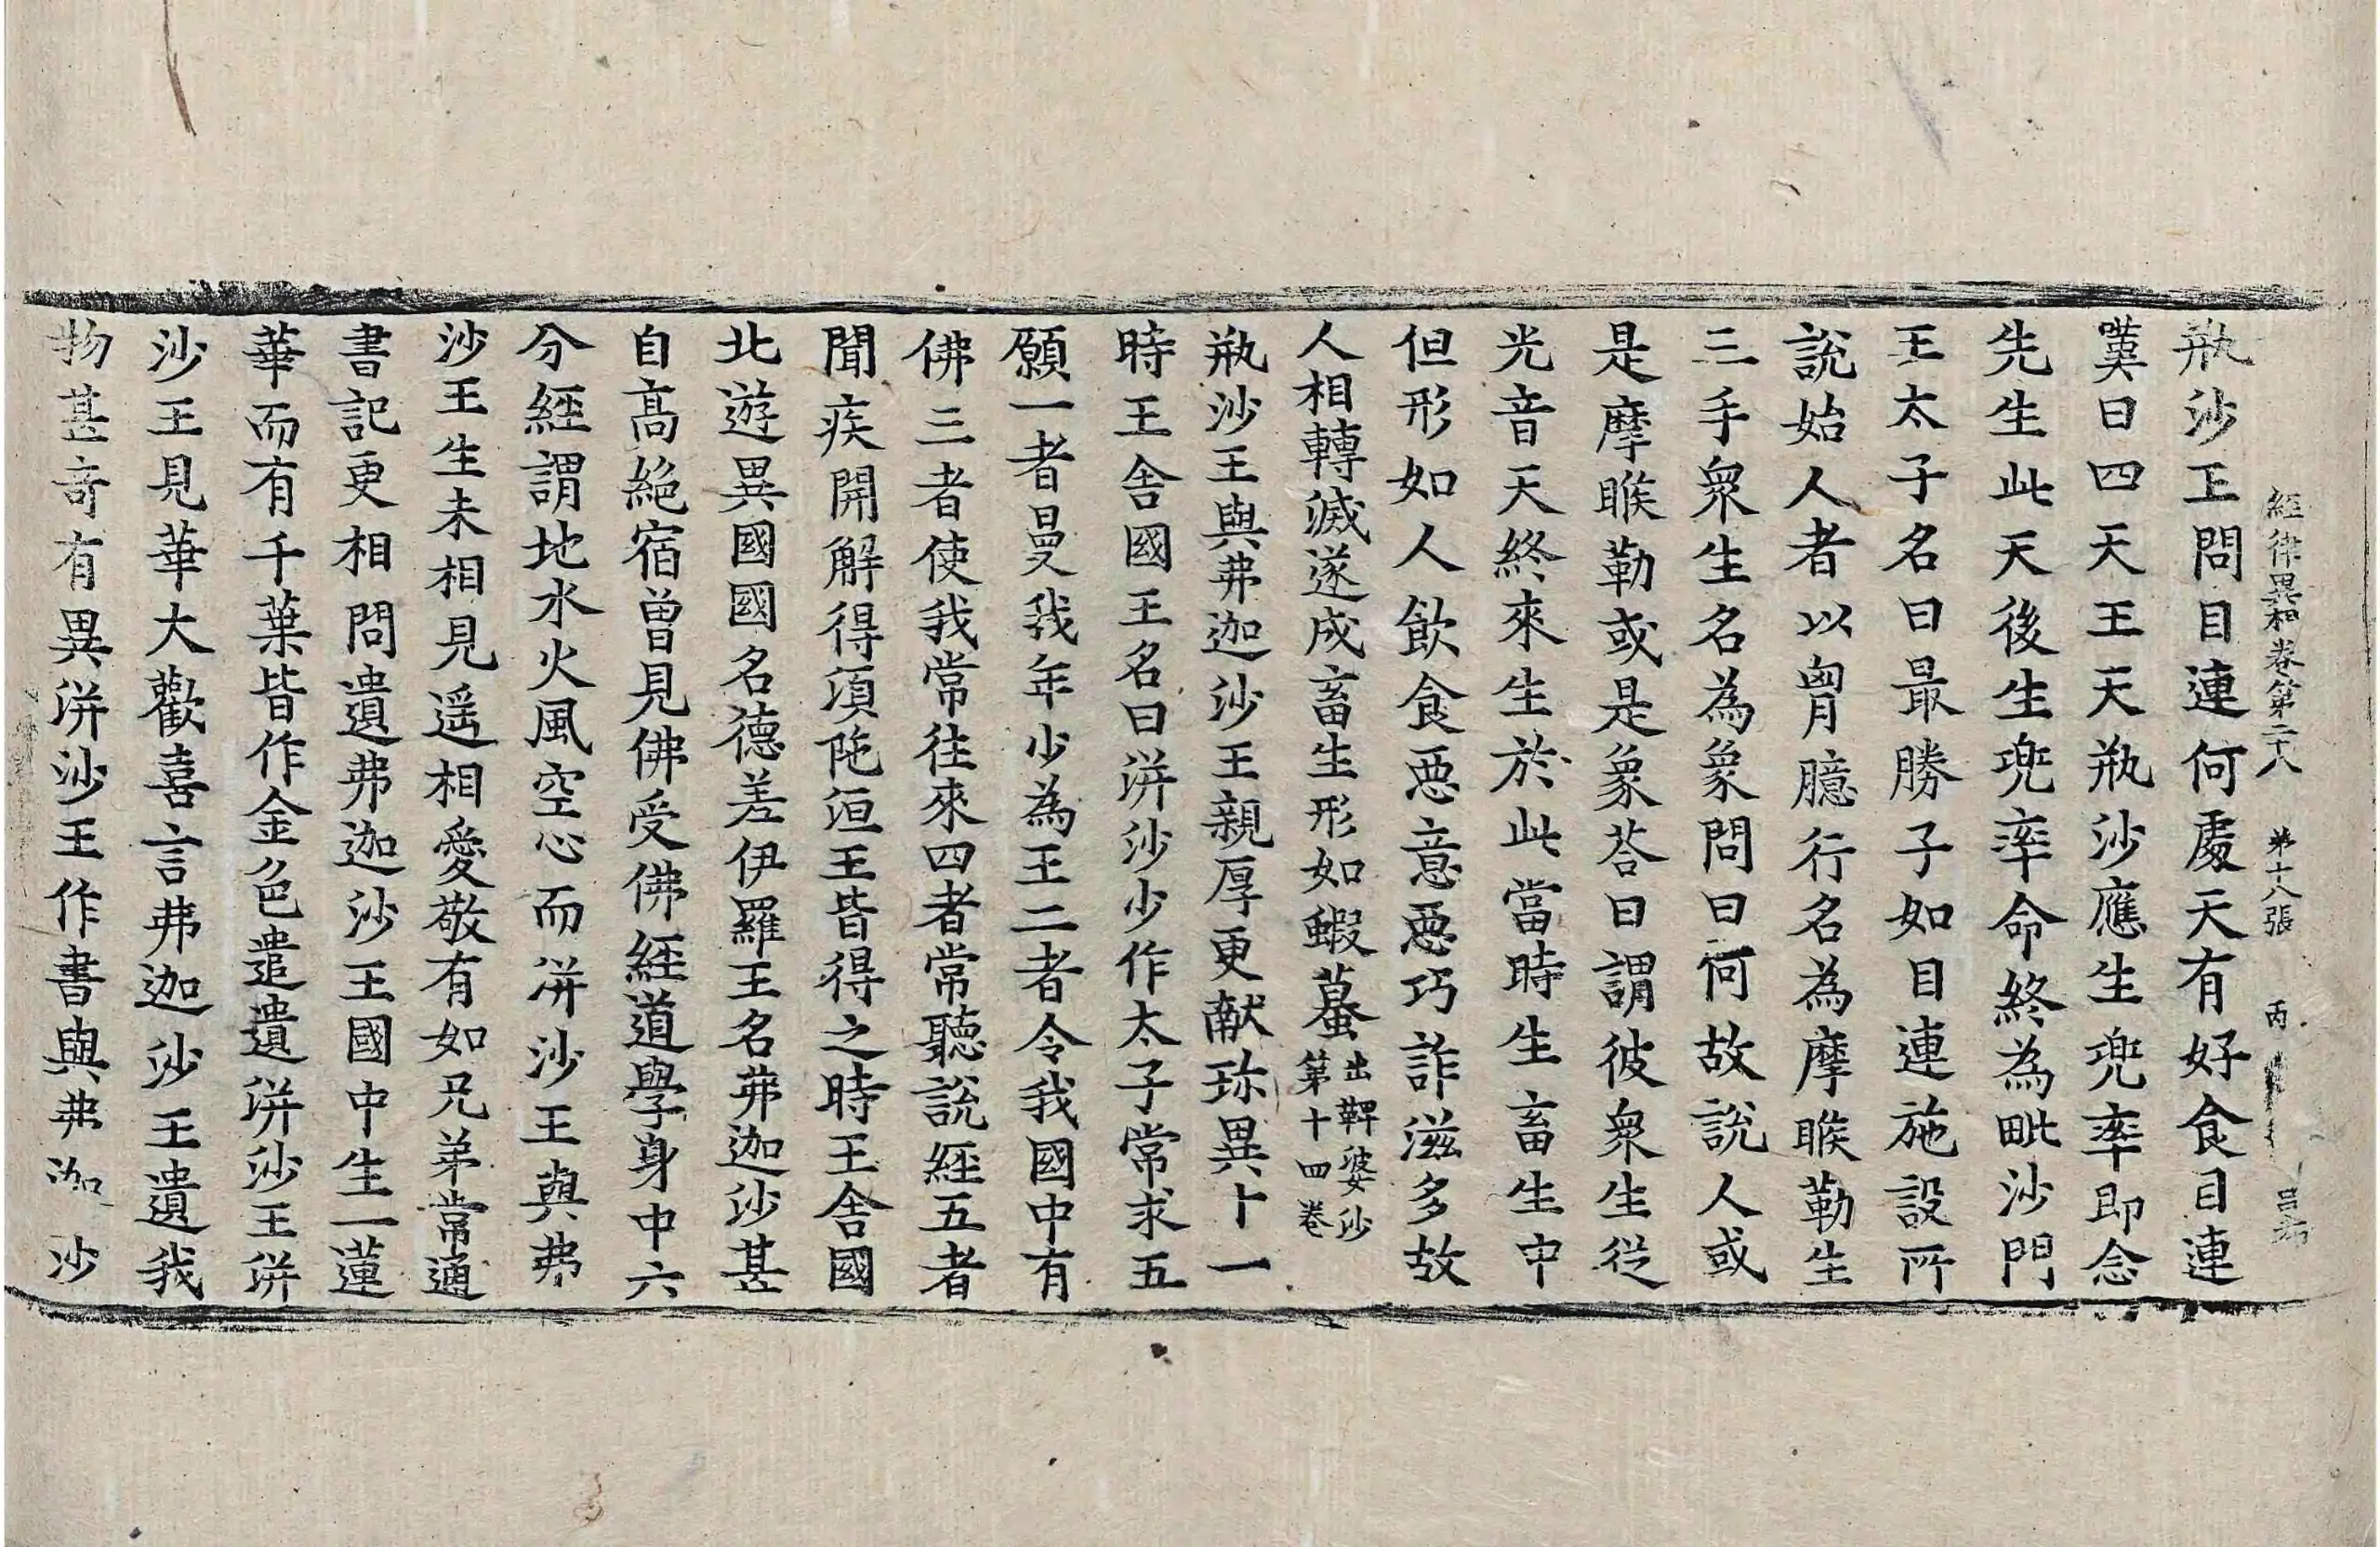 經律異相卷第二十八 第十八張 丙
甁沙王問目連何處天有好食目連
嘆曰四天王天甁沙應生兜率即念
先生此天後生兜率命終為毗沙門
王太子名曰最勝子如目連施設所
說始人者以胷臆行名為摩睺勒生
三手衆生名為象問曰何故說人或
是摩睺勒或是象荅曰謂彼衆生従
光音天終來生於此當時生畜生中
但形如人飲食惡意惡巧詐滋多故
人相轉滅遂成畜生形如蝦蟇出鞞婆沙第十四卷
甁沙王與弗迦沙王親厚更獻珎異十一
時王舍國王名曰洴沙少作太子常求五
願一者曼我年少為王二者令我國中有
佛三者使我常往來四者常聽說經五者
聞疾開解得湏陁洹王皆得之時王舍國
北遊異國國名德差伊羅王名弗迦沙甚
自髙絕宿曾見佛受佛經道學身中六
分經謂地水火風空心而洴沙王與弗
沙王生未相見遥相愛敬有如兄弟常通
書記更相問遺弗迦沙王國中生一蓮
華而有千葉皆作金色遣遺洴沙王洴
沙王見華大歡喜言弗迦沙王遺我
物甚奇有異洴沙王作書與弗迦沙